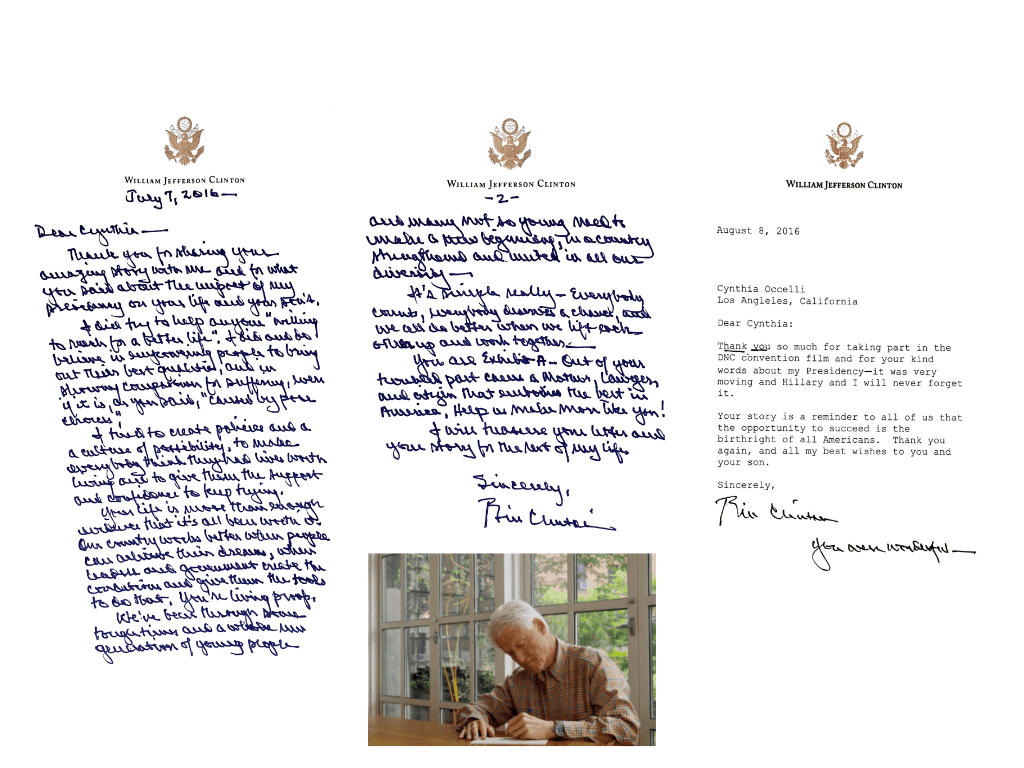 WILLIAM JEFFERSON CLINTON
July 7, 2016—
Dear Cynthia—
Thank you for sharing your
amazing story with me and for what
you said about the impact of my
Presidency on your life and your son's.
I did try to help anyone "willing
to work for a better life". I did and do
believe in empowering people to bring
out their best qualities, and in
showing compassion for suffering, even
if it is, as you said, "caused by poor
choices".
I tried to create policies and a
a culture of possibility, to make
everybody think they had lives worth
living and to give them the support
and confidence to keep trying.
Your life is more than enough
evidence that it's all been worth it.
Our country works better when people
can activate their dreams, when
and government create the
conditions and give them the tools
to do that. You're living proof.
We've been through some
tough times and a whole new
generation of young people
WILLIAM JEFFERSON CLINTON
-2-
and many not so young need to
make a new beginning, in a country
strengthened and united in all our
diversity—
It's simple really— Everybody
counts, everybody deserves a chance, and
we all do better when we lift each
other up and work together.—
You are Exhibit A— Out of your
troubled past came a Mother, Lawyer,
and citizen that embodies the best in
America, Help us make more like you!
I will treasure your letter and
your story for the rest of my life
Sincerely,
Bill Clinton
WILLIAM JEFFERSON CLINTON
August 8, 2016
Cynthia Occelli
Los Angleles, California
Dear Cynthia:
Thank you so much for taking part in the
DNC convention film and for your kind
words about my Presidency—it was very
moving and Hillary and I will never forget
it.
Your story is a reminder to all of us that
the opportunity to succeed is the
birthright of all Americans.  Thank you
again, and all my best wishes to you and
your son.
Sincerely,
Bill Clinton
You were wonderful—